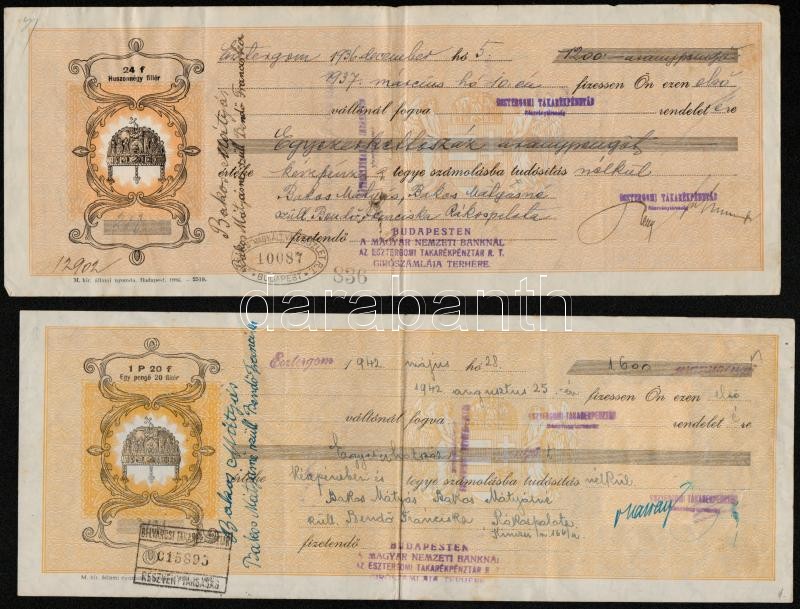 24 f
Huszonnégy fillér
Esztergom 1936 december hó 5. 1200 aranypengő
1937. március hó 10.-én fizessen Ön ezen első
váltónál fogva ESZTERGOMI TAKARÉKPÉNZTÁR rendelet é re
Részvénytársaság
Egyezerkettőszáz aranypengőt
értéke készpénz tegye számolásba tudósítás nélkül
Bakos Mátyás, Bakos Mátyásné
szül. Bendó Franciska Rákospalota
ESZTERGOMI TAKARÉKPÉNZTÁR
Részvénytársaság
fizetendő BUDAPESTEN
A MAGYAR NEMZETI BANKNÁL
AZ ESZTERGOMI TAKARÉKPÉNZTÁR R. T.
GIRÓSZÁMLÁJA TERHÉRE.
Bakos Mátyás
Bakos Mátyásné szül. Bendó Franciska
10087
BUDAPEST
836
12902
M. kir. állami nyomda, Budapest, 1936. — 2510.
darabanth
1 P 20 f
Egy pengő 20 fillér
Esztergom 1942 május hó 28. 1600
1942 augusztus 25.-én fizessen Ön ezen első
váltónál fogva ESZTERGOMI TAKARÉKPÉNZTÁR rendelet é re
Részvénytársaság
Egyezerhatszáz
Készpénzben és tegye számolásba tudósítás nélkül
Bakos Mátyás Bakos Mátyásné
szül. Bendó Franciska Rákospalota
ESZTERGOMI TAKARÉKPÉNZTÁR
fizetendő BUDAPESTEN
A MAGYAR NEMZETI BANKNÁL
AZ ESZTERGOMI TAKARÉKPÉNZTÁR R. T.
GIRÓSZÁMLÁJA TERHÉRE
Bakos Mátyás
Bakos Mátyásné szül. Bendó Franciska
BELVÁROSI TAKARÉK
015895
RÉSZVÉNYTÁRSASÁG
M. kir. állami nyomda